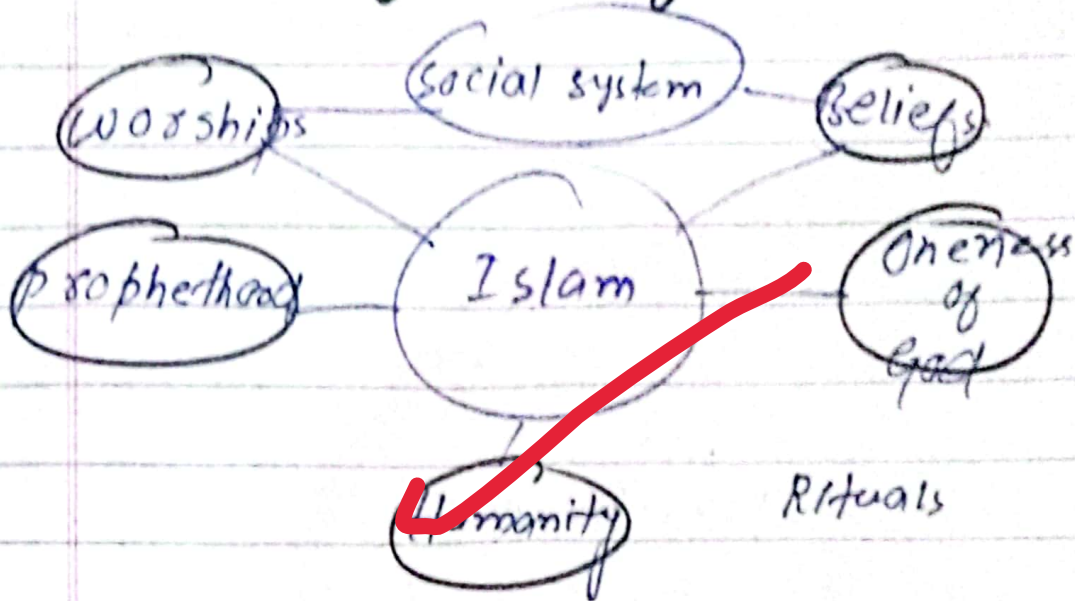 Social system
Worships
Beliefs
Islam
Prophethood
Oneness
of
God
Humanity
Rituals